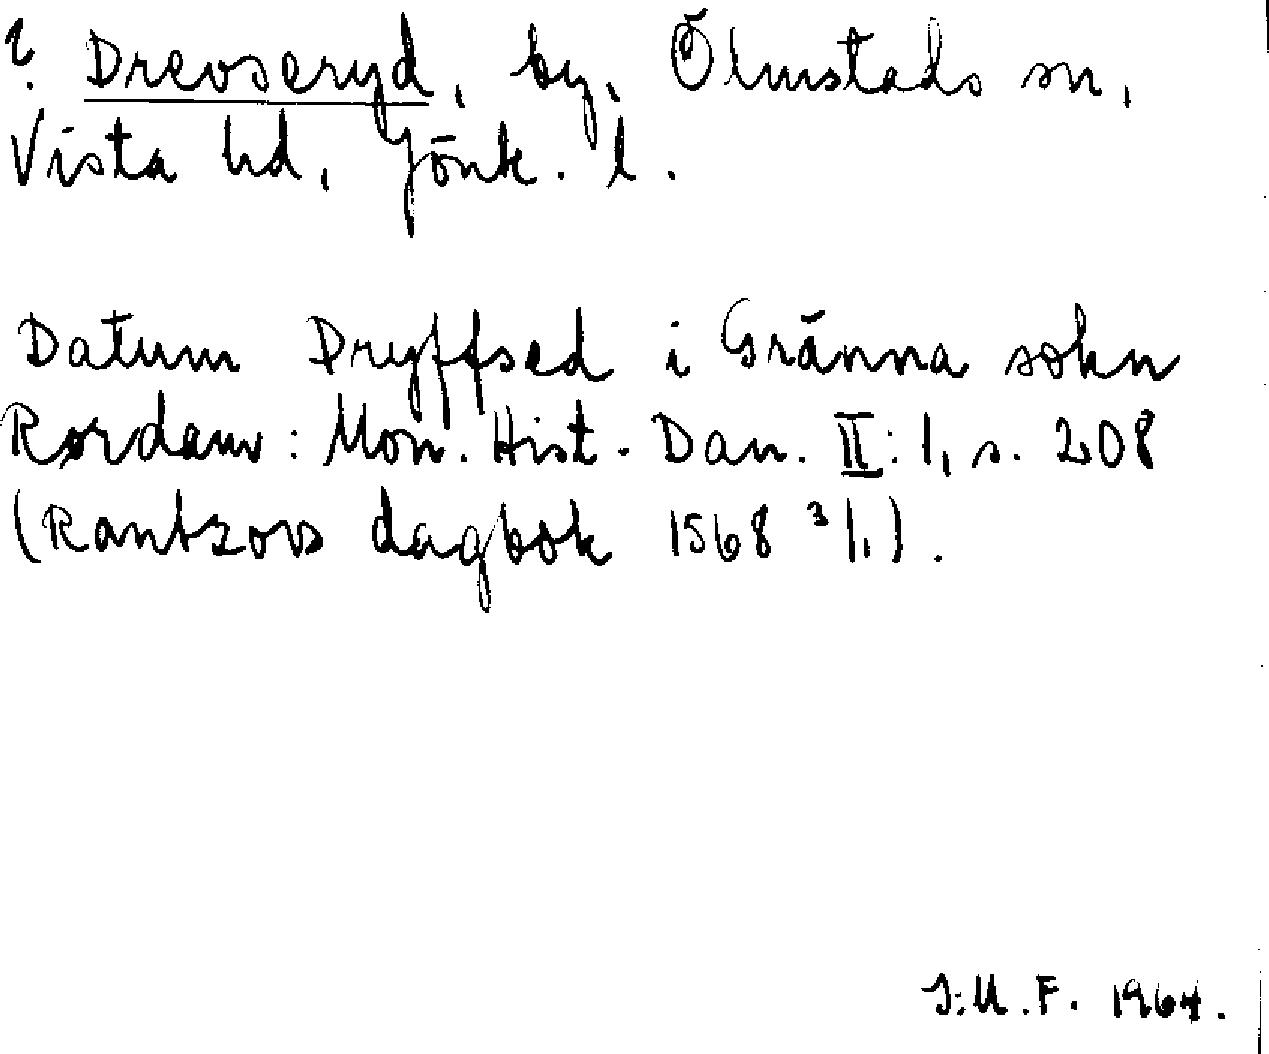 ? Drevseryd, by, Ölmstads sn,
Vista hd, Jönk. l.
Datum Dryffsed i Gränna sokn
Rørdam: Mon. Hist. Dan. II:1, s. 208
(Rantzovs dagbok 1568 3/1).
I.M.F. 1964.